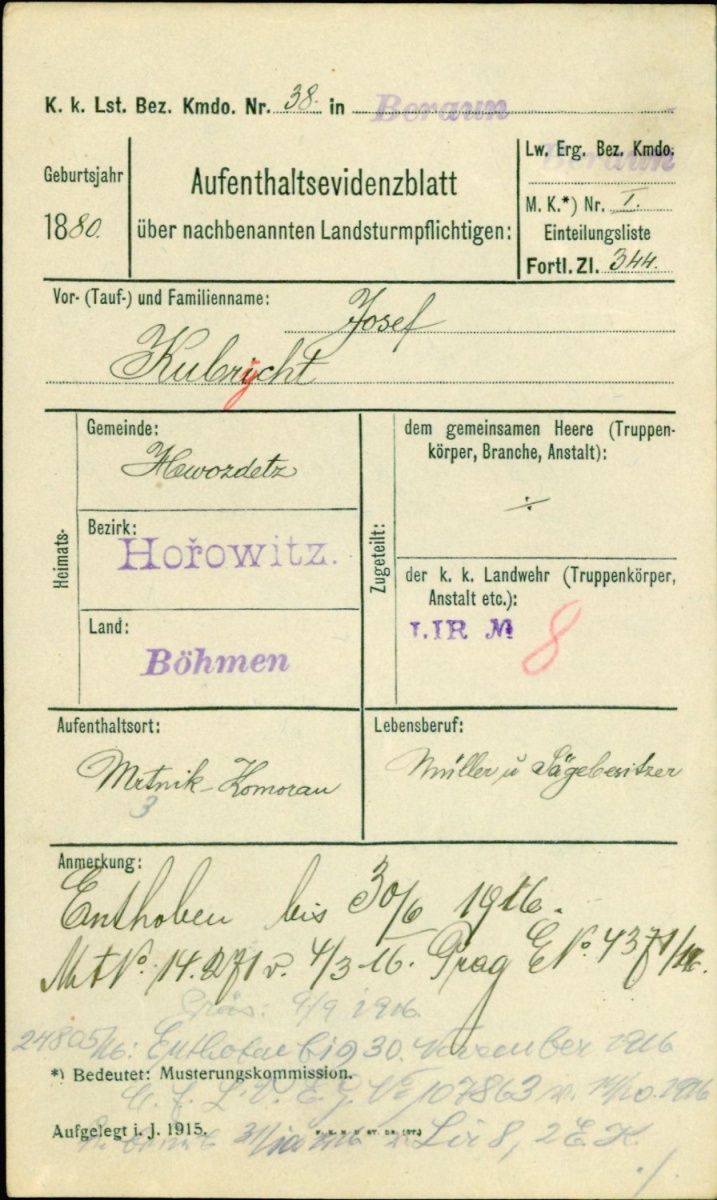 K. k. Lst. Bez. Kmdo. Nr. 38. in Beraun
Geburtsjahr
1880.
Aufenthaltsevidenzblatt
über nachbenannten Landsturmpflichtigen:
Lw. Erg. Bez. Kmdo.
Beraun
M. K.*) Nr. I.
Einteilungsliste
Fortl. Zl. 344.
Vor- (Tauf-) und Familienname: Josef
Kubrycht
Heimats-
Gemeinde:
Hwozdetz
Bezirk:
Hořowitz.
Land:
Böhmen
Zugeteilt:
dem gemeinsamen Heere (Truppen-
körper, Branche, Anstalt):
÷
der k. k. Landwehr (Truppenkörper,
Anstalt etc.):
LIR № 8
Aufenthaltsort:
Mrtnik-Komorau
3
Lebensberuf:
Müller u Sägebesitzer
Anmerkung:
Enthoben bis 30/6 1916.
v. 4/3 16. Prag
4/9 1916
24805/16: Enthoben bis 30. November 1916
*) Bedeutet: Musterungskommission.
№ 107863 v. 1916
Aufgelegt i. J. 1915.
Lir 8,